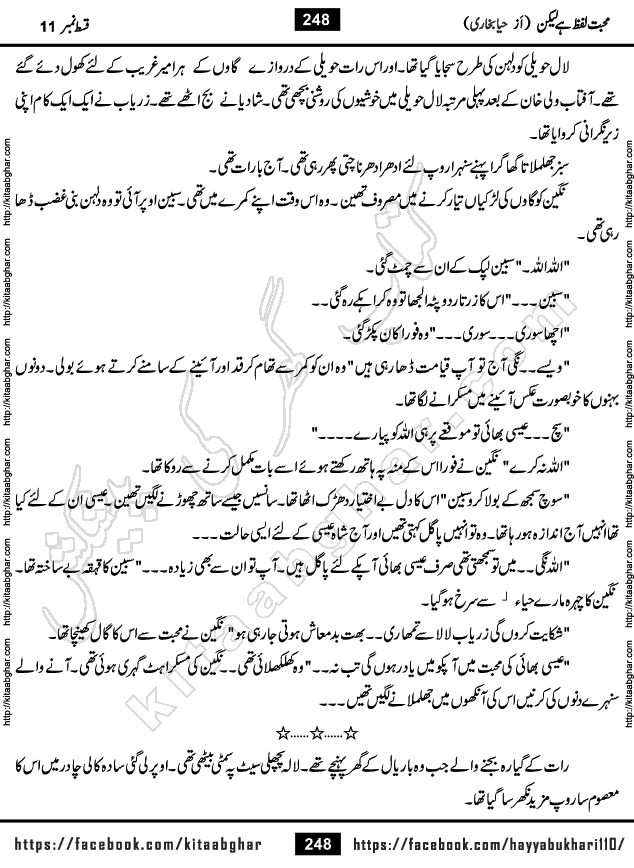 محبت لفظ ہے لیکن (از حیا بخاری)
248
قسط نمبر 11
لال حویلی کو دلہن کی طرح سجایا گیا تھا۔ اور اس رات حویلی کے دروازے گاوں کے ہر امیر غریب کے لئے کھول دئے گئے
تھے۔ آفتاب ولی خان کے بعد پہلی مرتبہ لال حویلی میں خوشیوں کی روشنی بچھی تھی۔ شادیانے بج اٹھے تھے۔ زریاب نے ایک ایک کام اپنی
زیر نگرانی کروایا تھا۔
سبز جھلملاتا گھاگرا پہنے سنہرا روپ لئے ادھر ادھر ناچتی پھر رہی تھی۔ آج بارات تھی۔
نگین کو گاوں کی لڑکیاں تیار کرنے میں مصروف تھین۔ وہ اس وقت اپنے کمرے میں تھی۔ سبین اوپر آئی تو وہ دلہن بنی غضب ڈھا
رہی تھی۔
"اللہ اللہ۔" سبین لپک کے ان سے چمٹ گئی۔
"سبین۔۔۔" اس کا زرتار دوپٹہ الجھا تو وہ کراہ کے رہ گئی۔۔
"اچھا سوری۔۔۔ سوری۔۔۔" وہ فورا کان پکڑ گئی۔
"ویسے۔۔ نگی آج تو آپ قیامت ڈھا رہی ہیں" وہ ان کو کمر سے تھام کر قد اور آئینے کے سامنے کرتے ہوئے بولی۔ دونوں
بہنوں کا خوبصورت عکس آئینے میں مسکرانے لگا تھا۔
"سچ۔۔۔ عیسی بھائی تو موقعے پر ہی اللہ کو پیارے۔۔۔۔"
"اللہ نہ کرے" نگین نے فورا اس کے منہ پہ ہاتھ رکھتے ہوئے اسے بات مکمل کرنے سے روکا تھا۔
"سوچ سمجھ کے بولا کرو سبین" اس کا دل بے اختیار دھڑک اٹھا تھا۔ سانسیں جیسے ساتھ چھوڑنے لگیں تھین۔ عیسی ان کے لئے کیا
تھا انہیں آج اندازہ ہو رہا تھا۔ وہ تو انہیں پاگل کہتی تھیں اور آج شاہ عیسی کے لئے ایسی حالت۔۔۔
"اللہ نگی۔۔ میں تو سمجھتی تھی صرف عیسی بھائی آپ کے لئے پاگل ہیں۔ آپ تو ان سے بھی زیادہ۔۔۔" سبین کا قہقہہ بے ساختہ تھا۔
نگین کا چہرہ مارے حیاء سے سرخ ہو گیا۔
"شکایت کروں گی زریاب لالا سے تمھاری۔۔ بھت بدمعاش ہوتی جا رہی ہو" نگین نے محبت سے اس کا گال کھینچا تھا۔
"عیسی بھائی کی محبت میں آپکو میں یاد رہوں گی تب نہ۔۔" وہ کھلکھلائی تھی۔۔ نگین کی مسکراہٹ گہری ہوئی تھی۔ آنے والے
سنہرے دنوں کی کرنیں اس کی آنکھوں میں جھلملانے لگیں تھیں۔۔۔
☆......☆......☆
رات کے گیارہ بجنے والے جب وہ باریال کے گھر پہنچے تھے۔ لالہ پچھلی سیٹ پہ سمٹی بیٹھی تھی۔ اوپر لی گئی سادہ کالی چادر میں اس کا
معصوم سا روپ مزید نکھر سا گیا تھا۔
http://kitaabghar.com http://kitaabghar.com http://kitaabghar.com http://kitaabghar.com http://kitaabghar.com http://kitaabghar.com
http://kitaabghar.com http://kitaabghar.com http://kitaabghar.com http://kitaabghar.com http://kitaabghar.com http://kitaabghar.com
کتاب گھر کی پیشکش
kitaabghar.com
https://facebook.com/kitaabghar
248
https://facebook.com/hayyabukhari110/